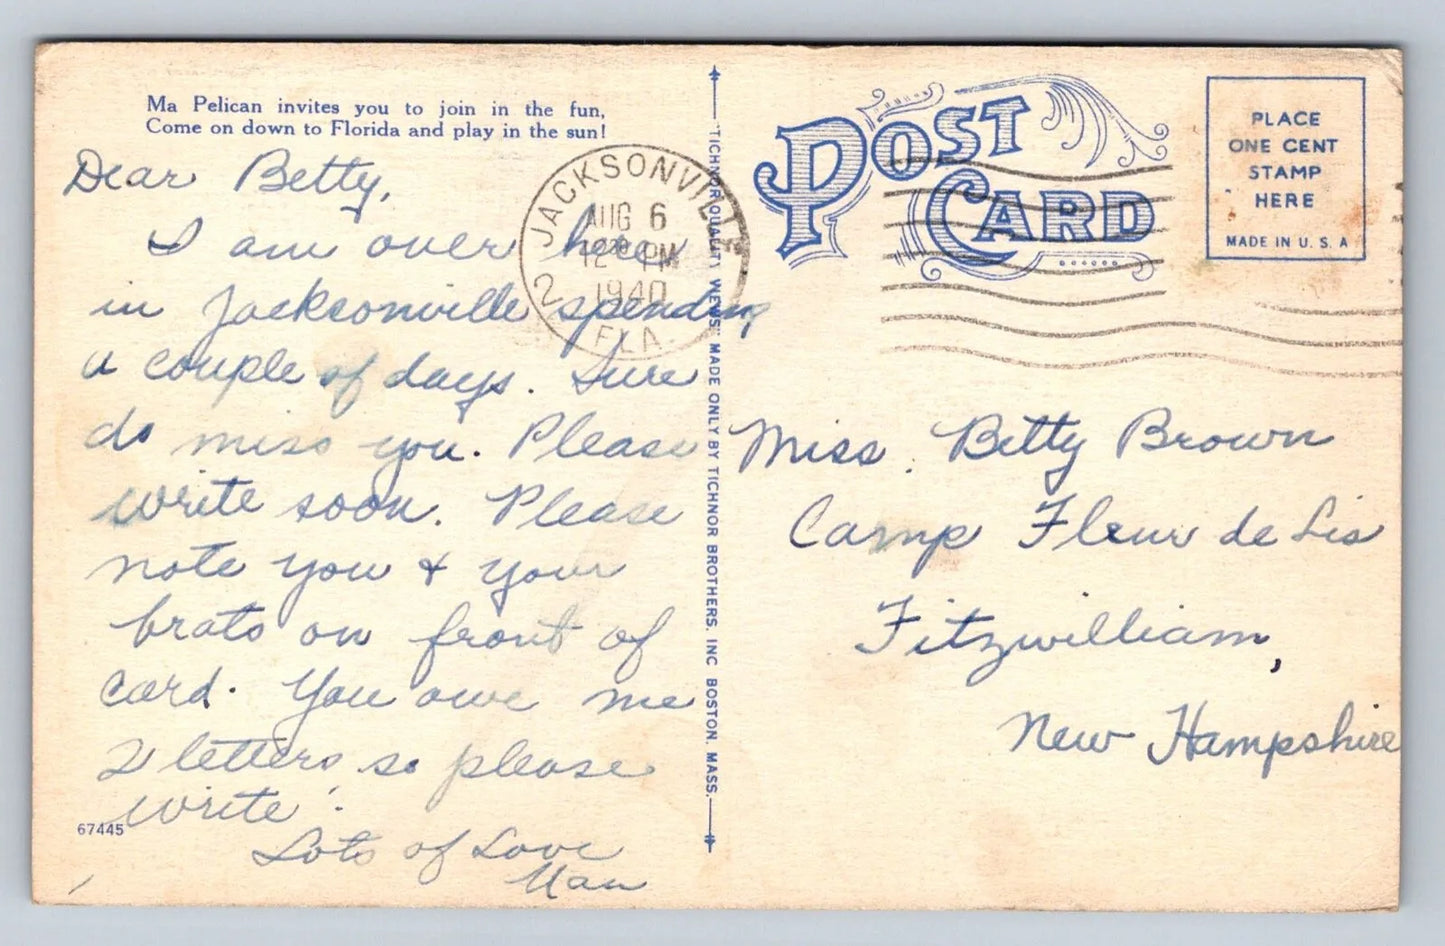 Ma Pelican invites you to join in the fun,
Come on down to Florida and play in the sun!
Dear Betty,
I am over here
in Jacksonville spending
a couple of days. Sure
do miss you. Please
write soon. Please
note you & your
brats on front of
card. You owe me
2 letters so please
write!
Lots of Love
67445
JACKSONVILLE
AUG 6
12 PM
1940
2
FLA.
"TICHNOR QUALITY VIEWS" MADE ONLY BY TICHNOR BROTHERS. INC BOSTON. MASS.
POST
CARD
PLACE
ONE CENT
STAMP
HERE
MADE IN U. S. A
Miss. Betty Brown
Camp Fleur de Lis
Fitzwilliam,
New Hampshire